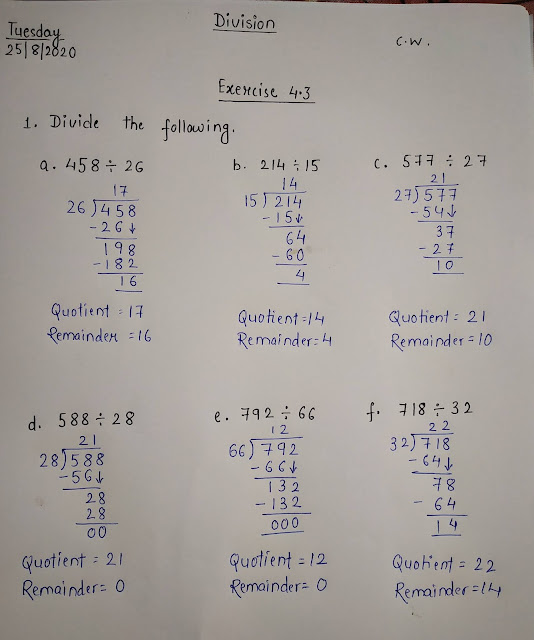 Division
Tuesday
25/8/2020
C.W.
Exercise 4.3
1. Divide the following.
a. 458 ÷ 26
17
26)458
-26↓
198
-182
16
Quotient = 17
Remainder = 16
b. 214 ÷ 15
14
15)214
-15↓
64
-60
4
Quotient = 14
Remainder = 4
c. 577 ÷ 27
21
27)577
-54↓
37
-27
10
Quotient = 21
Remainder = 10
d. 588 ÷ 28
21
28)588
-56↓
28
28
00
Quotient = 21
Remainder = 0
e. 792 ÷ 66
12
66)792
-66↓
132
-132
000
Quotient = 12
Remainder = 0
f. 718 ÷ 32
22
32)718
-64↓
78
- 64
14
Quotient = 22
Remainder = 14